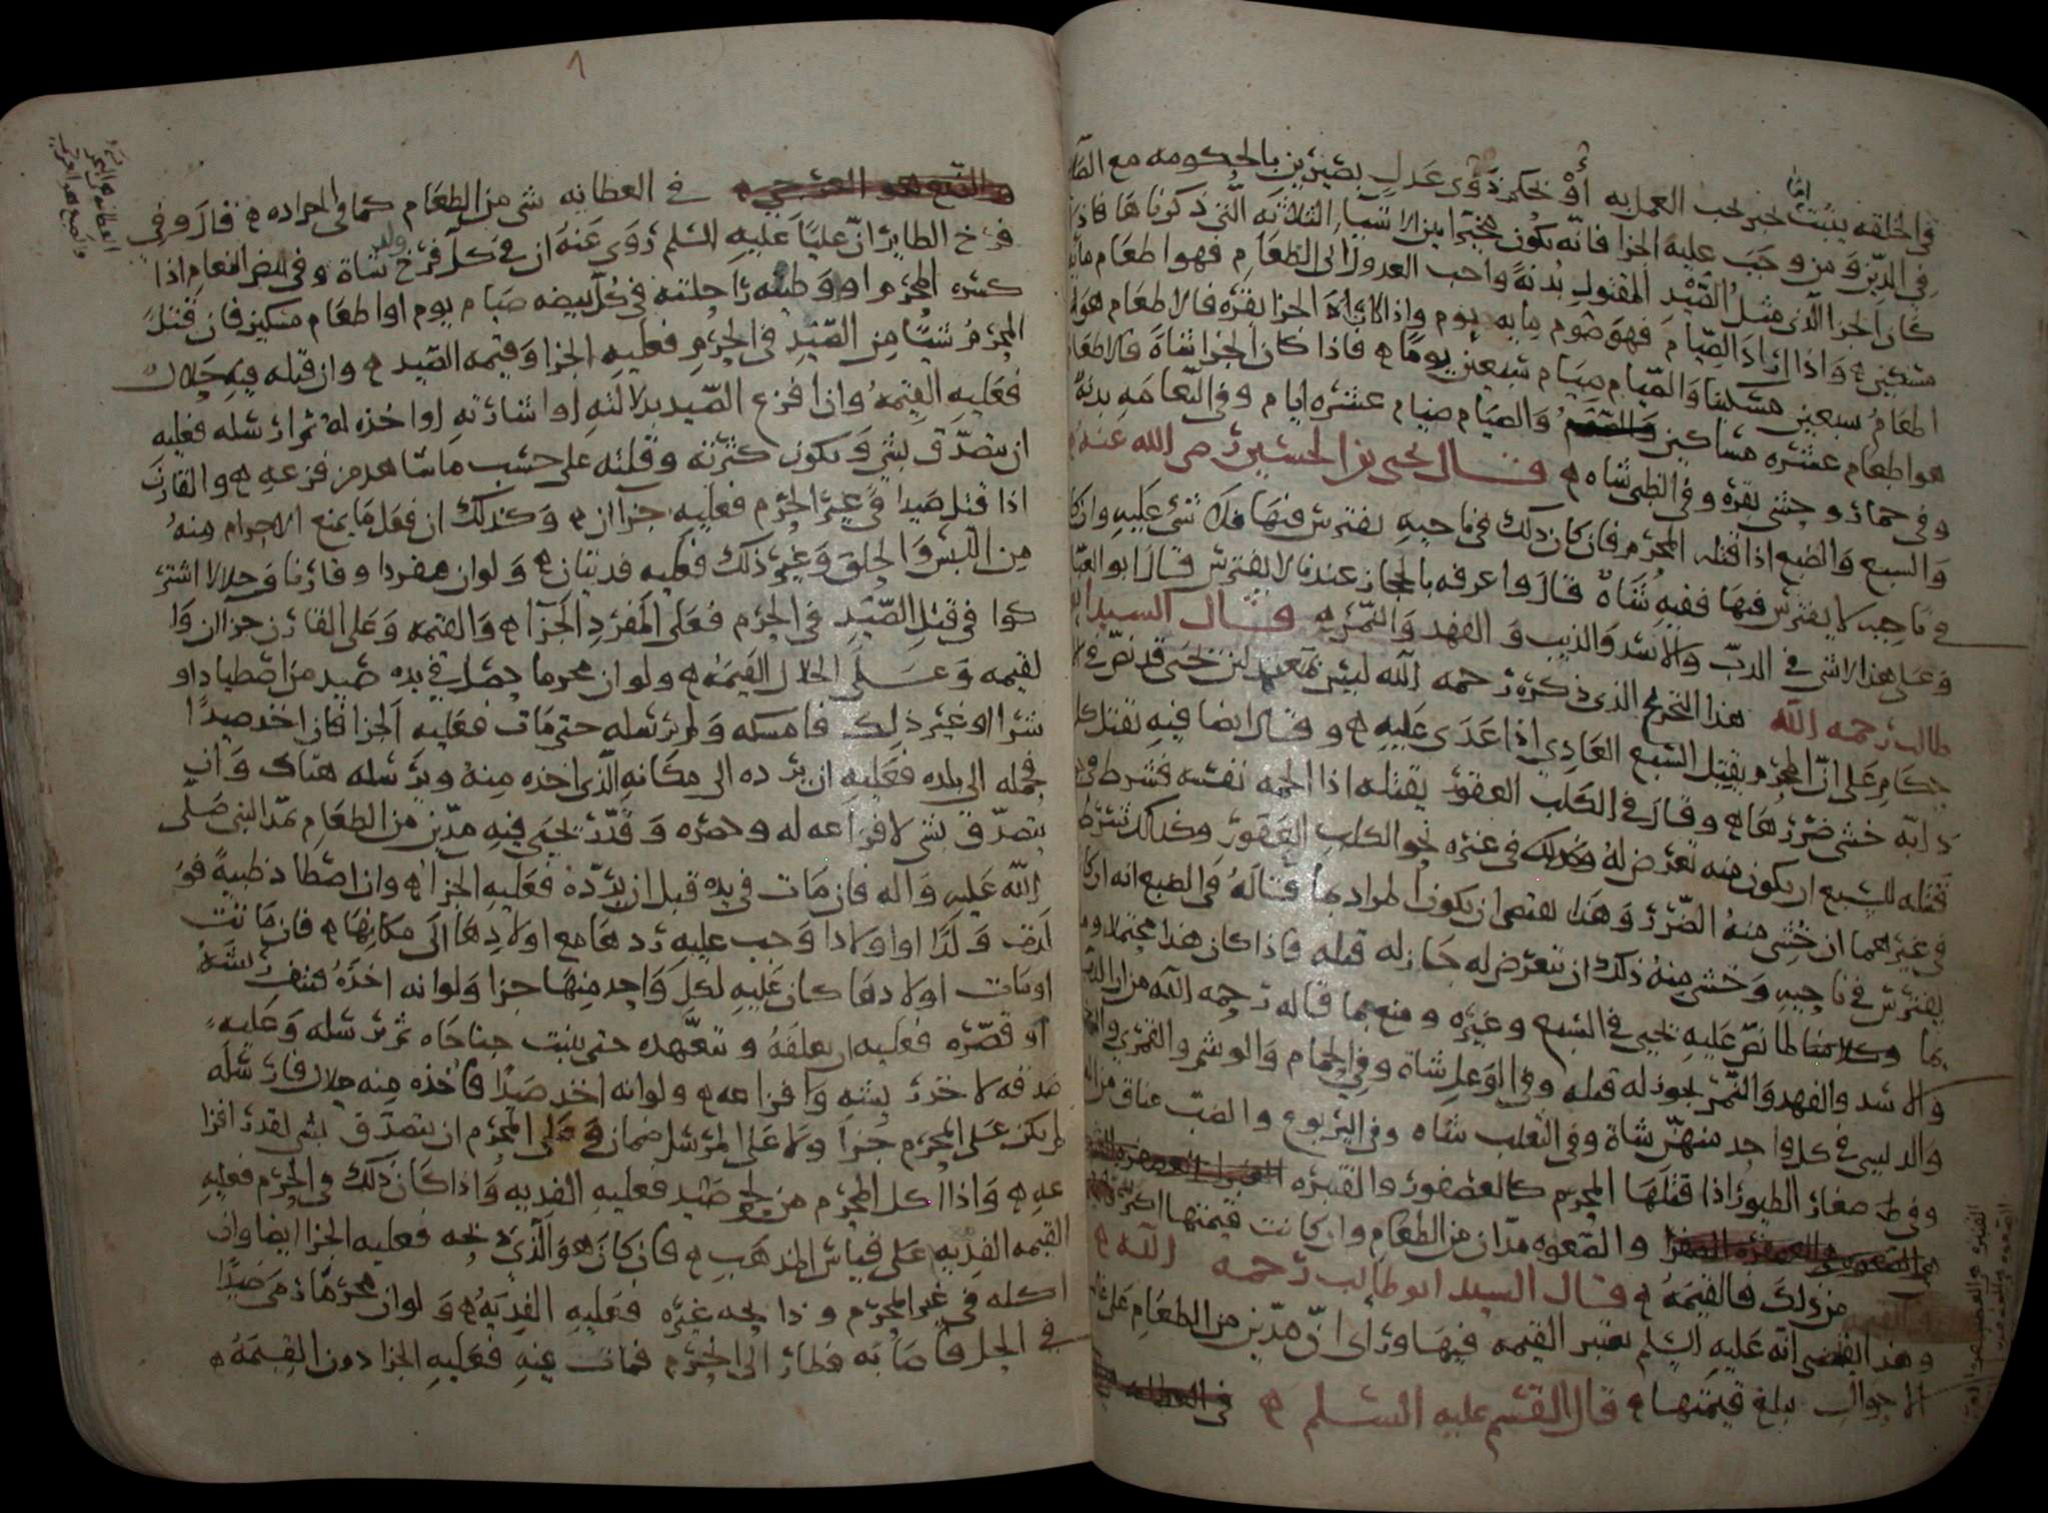 في الخلقه يثبت لخبر لحب العمل به أو بحكم ذوى عدل بصيرين بالحكومه مع
امّا
في الدين ومن وجب عليه الجزا فانه يكون مخيرا بين الاشيا الثلاثه التي ذكرناها فاذا
كان الجزا الذى مثل الصيد المقتول بدنة واحب العدول الى الطعام فهو اطعام مايه
مسكين واذا اراد الصيام فهو صوم مايه يوم واذا كان الجزا بقره فالاطعام هو
اطعام سبعين مسكينا والصيام صيام سبعين يوما فاذا كان الجزا شاة فالاطعام
هو اطعام عشره مساكين والصيام صيام عشره ايام وفي النعامه بدنه
وفي حمار وحشى بقره وفي الظبى شاه قال يحيى بن الحسين رضى الله عنه
والسبع والضبع اذا قتله المحرم فان كان ذلك في ناحيه يفترس فيها فلا شى عليه وان كان
في ناحيه لا يفترس فيها ففيه شاة قال واعرفه بالحجاز عندنا لا يفترس قال ابو العباس
وعلى هذا الاشى في الدب والاسد والذيب والفهد والنمر قال السيد ابو
طالب رحمه الله هذا التخريج الذى ذكره رحمه الله ليس بمعتمد لان يحيى قد نص في
حكام على ان المحرم يقتل السبع العادي اذا عدى عليه وقال ايضا فيه تقتل كل
دابه خشى ضررها وقال في الكلب العقور يقتله اذا الحمه نفسه فشرط في
قتله للسبع ان يكون منه تعرض له وكذلك في غيره نحو الكلب العقور وكذلك شرط
في غيرهما ان خشى منه الضرر وهذا يقتضى ان يكون المراد بما قاله في الضبع انه ان كان
يفترس في ناحيه وخشى منه ذلك ان يتعرض له جاز له قتله فاذا كان هذا محتملا
بما وكلامنا لما نص عليه يحيى في السبع وغيره ومنع مما قاله رحمه الله من ان
والاسد والفهد والنمر يجوز له قتله وفي الوعل شاة وفي الحمام والوشم والقمرى
والدلبسى في كل واحد منهن شاة وفي الثعلب شاه وفي اليربوع والضب عناق من
وفي صغار الطيور اذا قتلها المحرم كالعصفور والقنبره
والصعوه مدان من الطعام وان كانت قيمتها اكثر
من ذلك فالقيمه قال السيد ابو طالب رحمه الله
وهذا يقتضى انه عليه السلم يعتبر القيمه فيها وراى ان مدين من الطعام على
الاحوال يبلغ قيمتها قال القسم عليه السلم
في العظايه شى من الطعام كما في الجراده قال وفي
فرخ الطاير ان عليا عليه السلم روى عنه ان في كل فرخ شاة وفي بيض النعام اذا
كسره المحرم او وطيه راحلته في كل بيضه صيام يوم او اطعام مسكين فان قتل
المحرم شيئا من الصيد في الحرم فعليه الجزا وقيمه الصيد وان قتله فيه حلال
فعليه القيمه واذا فزع الصيد بدلالته او اشارته او اخذه له ثم ارسله فعليه
ان يتصدق بشى ويكون كثرته وقلته على حسب ما شاهد من فزعه والقارن
اذا قتل صيدا في غير الحرم فعليه جزآان وكذلك ان فعل ما يمنع الاحرام منه
من اللبس والحلق وغير ذلك فعليه فديتان ولو ان مفردا وقارنا وحلالا اشتر
كوا في قتل الصيد في الحرم فعلى المفرد الجزا والقيمه وعلى القارن جزاان وا
لقيمه وعلى الحلال القيمه ولو ان محرما حصل في يده صيد من اصطياد او
شرا او غير ذلك فامسكه ولم يرسله حتى مات فعليه الجزا فان اخذ صيدا
فحمله الى بلده فعليه ان يرده الى مكانه الذى اخذه منه ويرسله هناك وان
يتصدق بشى لافزاعه له وحصره وقدر يحيى فيه مدين من الطعام بمد النبى صلى
الله عليه واله فان مات في يده قبل ان يرده فعليه الجزا وان اصطاد ظبية فو
لدت ولدا او اولادا وجب عليه ردها مع اولادها الى مكانها فان ماتت
او مات اولادها كان عليه لكل واحد منها جزا ولو انه اخذه فنتف ريشه
او قصره فعليه ان يعلفه ويتعهده حتى ينبت جناحاه ثم يرسله وعليه
صدقه لاخذ ريشه وافزاعه ولو انه اخذ صيدا فاخذه منه حلال فارسله
لم يكن على المحرم جزا ولا على المرسل ضمان وعلى المحرم ان يتصدق بشى لقدر افزا
عه واذا اكل المحرم من لحم صيد فعليه الفديه واذا كان ذلك في الحرم فعليه
القيمه الفديه على قياس المذهب فان كان هو الذى ذبحه فعليه الجزا ايضا وان
اكله في غير الحرم وذابحه غيره فعليه الفديه ولو ان محرما رمى صيدا
في الحل فاصابه فطار الى الحرم فمات فيه فعليه الجزا دون القيمه